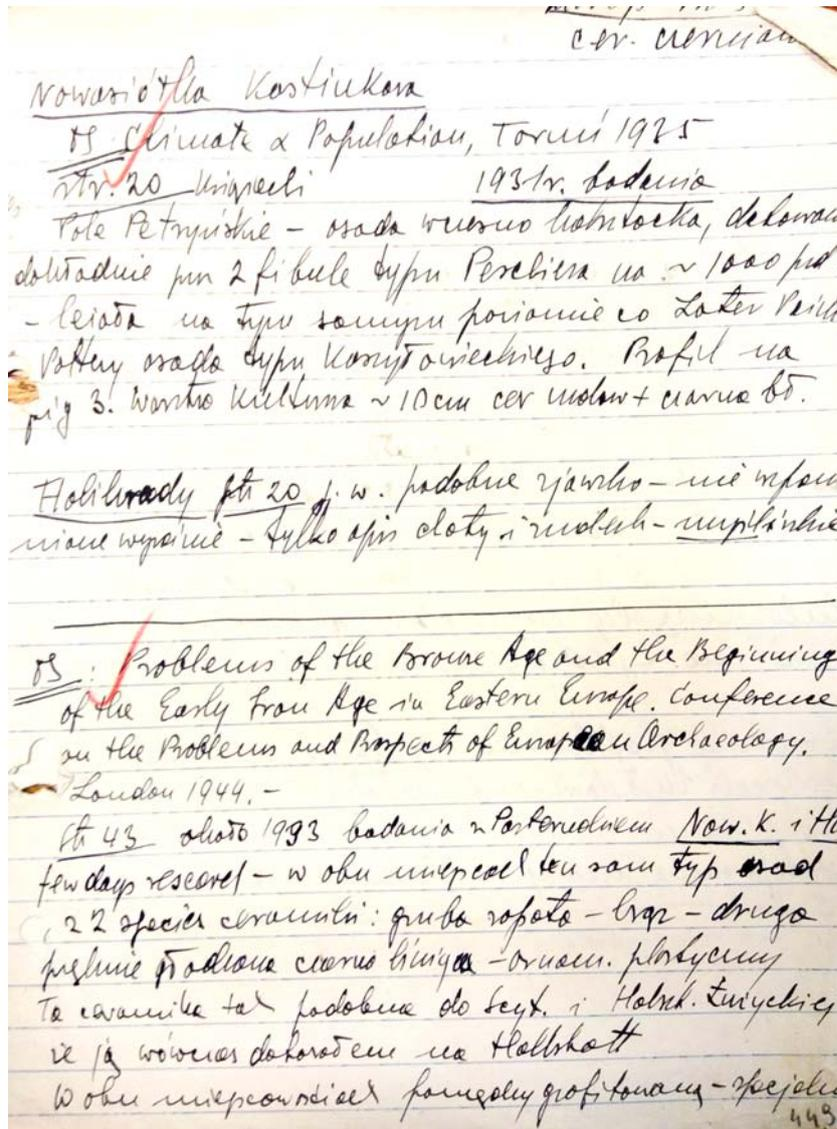 cer. czerniaw
Nowosiółka Kostiukowa
TS Climate & Population, Toruń 1935
str. 20 książecki 1931r. badania
Pole Petryńskie – osada wczesno halsztacka, datowan
dokładnie prn 2 fibule typu Peschiera na ~ 1000 prd
– leżała na tym samym poziomie co Later Pain
Pottery osada typu Koszyłowieckiego. Profil na
fig 3. warstwa kulturna ~ 10cm cer malow + czarna bł.
Holihrady str 20 j.w. podobne zjawisko – nie wspom
niane wyraźnie – tylko opis chaty i zwłaszcz –
TS : Problems of the Bronze Age and the Beginning
of the Early Iron Age in Eastern Europe. Conference
on the Problems and Prospects of European Archaeology.
London 1944. –
Str 43 około 1933 badania z Pasternakiem Now. K. i Ho
few days research – w obu miejscach ten sam typ osad
, z 2 species ceramiki : gruba ropata – brąz – druga
pięknie gładzona czarno lśniąca – ornam. plastyczny
Ta ceramika tak podobna do Scyt. i Halszt. Łużyckiej
że ją wówczas datowałem na Hallstatt
W obu miejscowościach pomiędzy grafitowaną – specjaln
443